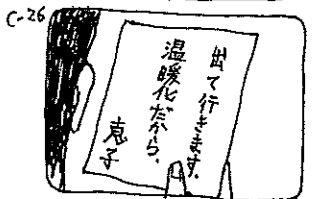 C-26
出て行きます。
温暖化だから、
恵子